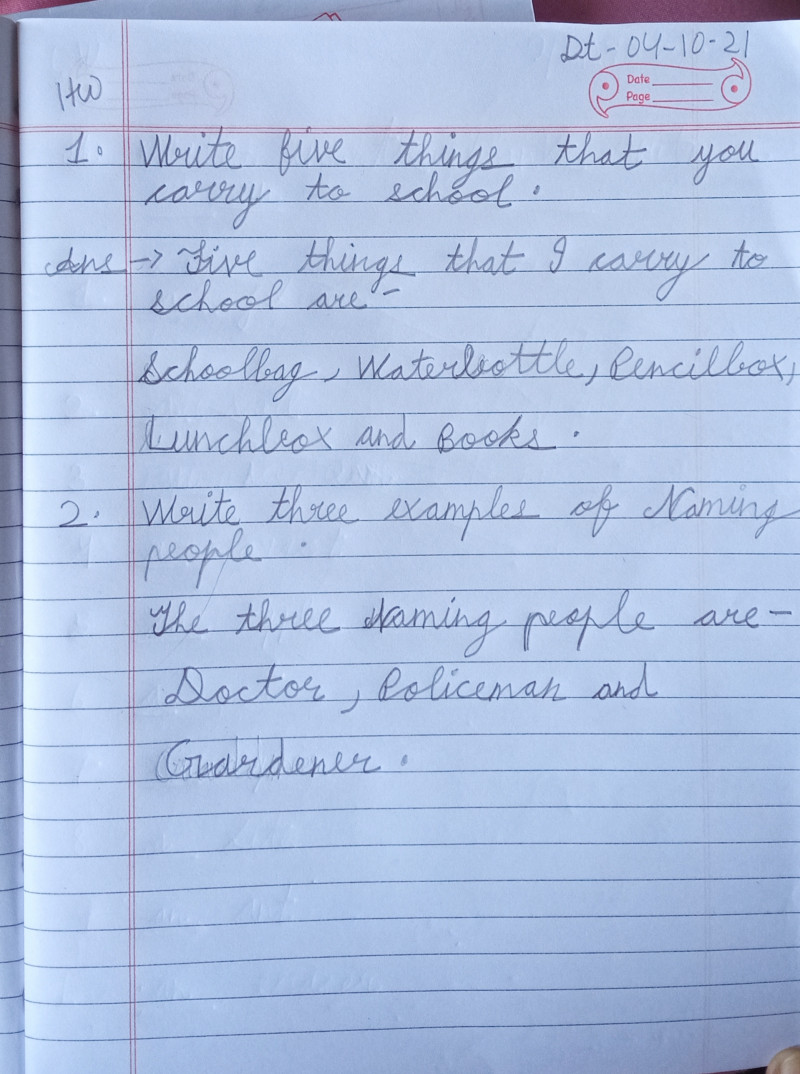 Dt-04-10-21
Date
Page
HW
1. Write five things that you
carry to school.
Ans → Five things that I carry to
school are-
Schoolbag, Waterbottle, Pencilbox,
Lunchbox and Books.
2. Write three examples of Naming
people.
The three Naming people are-
Doctor, Policeman and
Guardener.